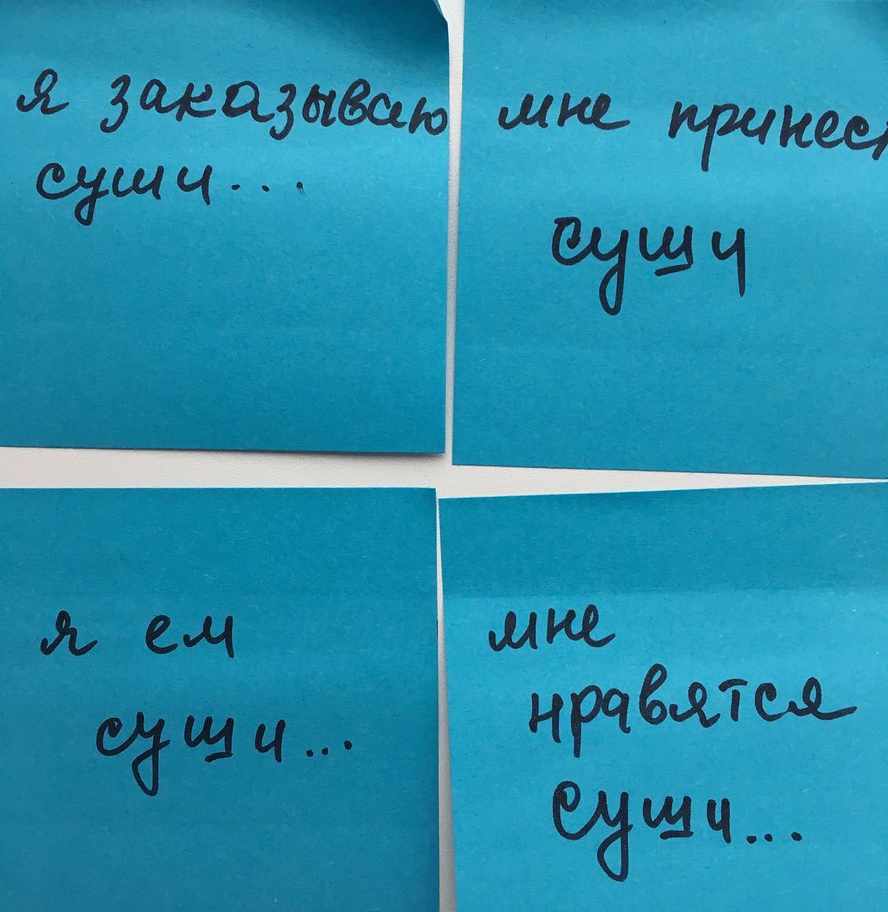 я заказываю
суши...
мне принес
суши
я ем
суши...
мне
нравятся
суши...